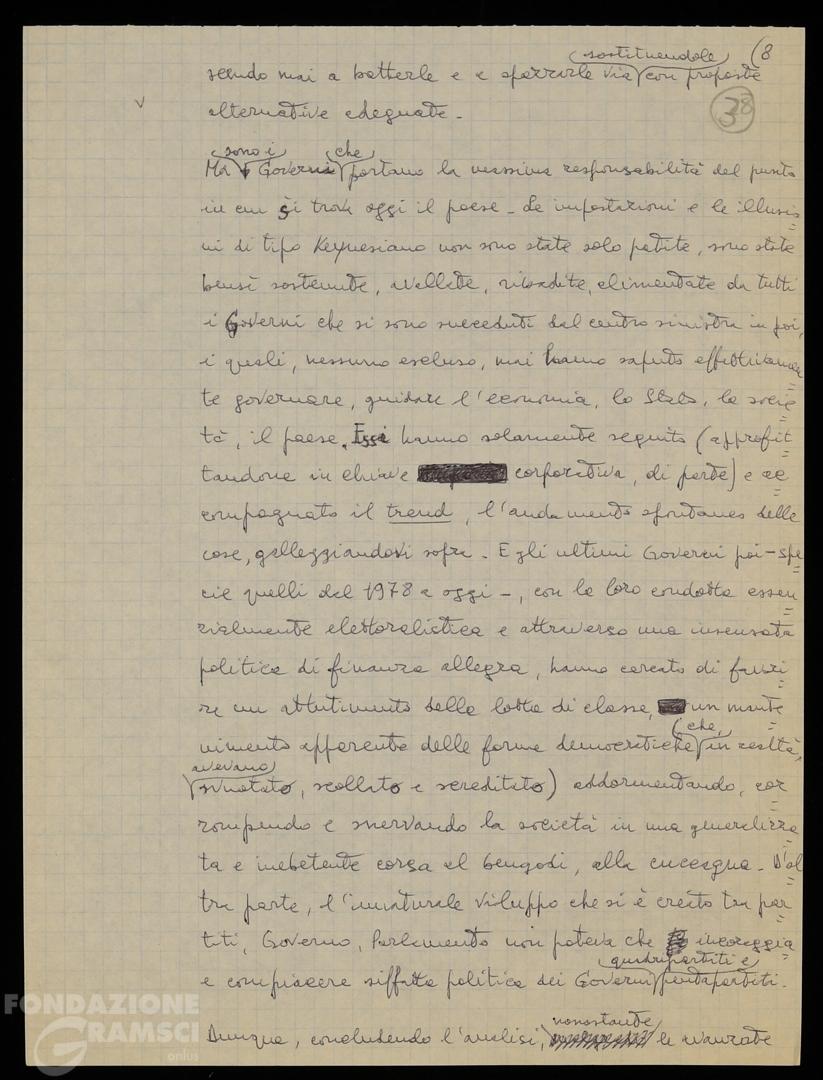 (8
sostituendole
scendo mai a batterle e a spazzarle via con proposte
38
alternative adeguate.
sono i che
Ma Governi portano la massima responsabilità del punto
in cui si trova oggi il paese. Le impostazioni e le illusio
ni di tipo Keynesiano non sono state solo patite, sono state
bensì sostenute, avallate, ribadite, alimentate da tutti
i Governi che si sono succeduti dal centro sinistra in poi,
i quali, nessuno escluso, mai hanno saputo effettivamen
te governare, guidare l'economia, lo Stato, la socie
tà, il paese. Essi hanno solamente seguito (approfit
tandone in chiave corporativa, di parte) e ac
compagnato il trend, l'andamento spontaneo delle
cose, galleggiandovi sopra. E gli ultimi Governi poi - spe
cie quelli del 1978 a oggi -, con la loro condotta essen
zialmente elettoralistica e attraverso una insensata
politica di finanza allegra, hanno cercato di favori
re un attutimento della lotta di classe, un mante
nimento apparente delle forme democratiche (che, in realtà,
avevano
svuotato, scollato e screditato) addormentando, cor
rompendo e snervando la società in una generalizza
ta e inebetente corsa al bengodi, alla cuccagna. D'al
tra parte, l'innaturale viluppo che si è creato tra par
titi, Governo, Parlamento non poteva che incoraggia
quadripartiti e
e compiacere siffatta politica dei Governi pentapartiti.
nonostante
Dunque, concludendo l'analisi, le svanzate
FONDAZIONE
GRAMSCI
onlus